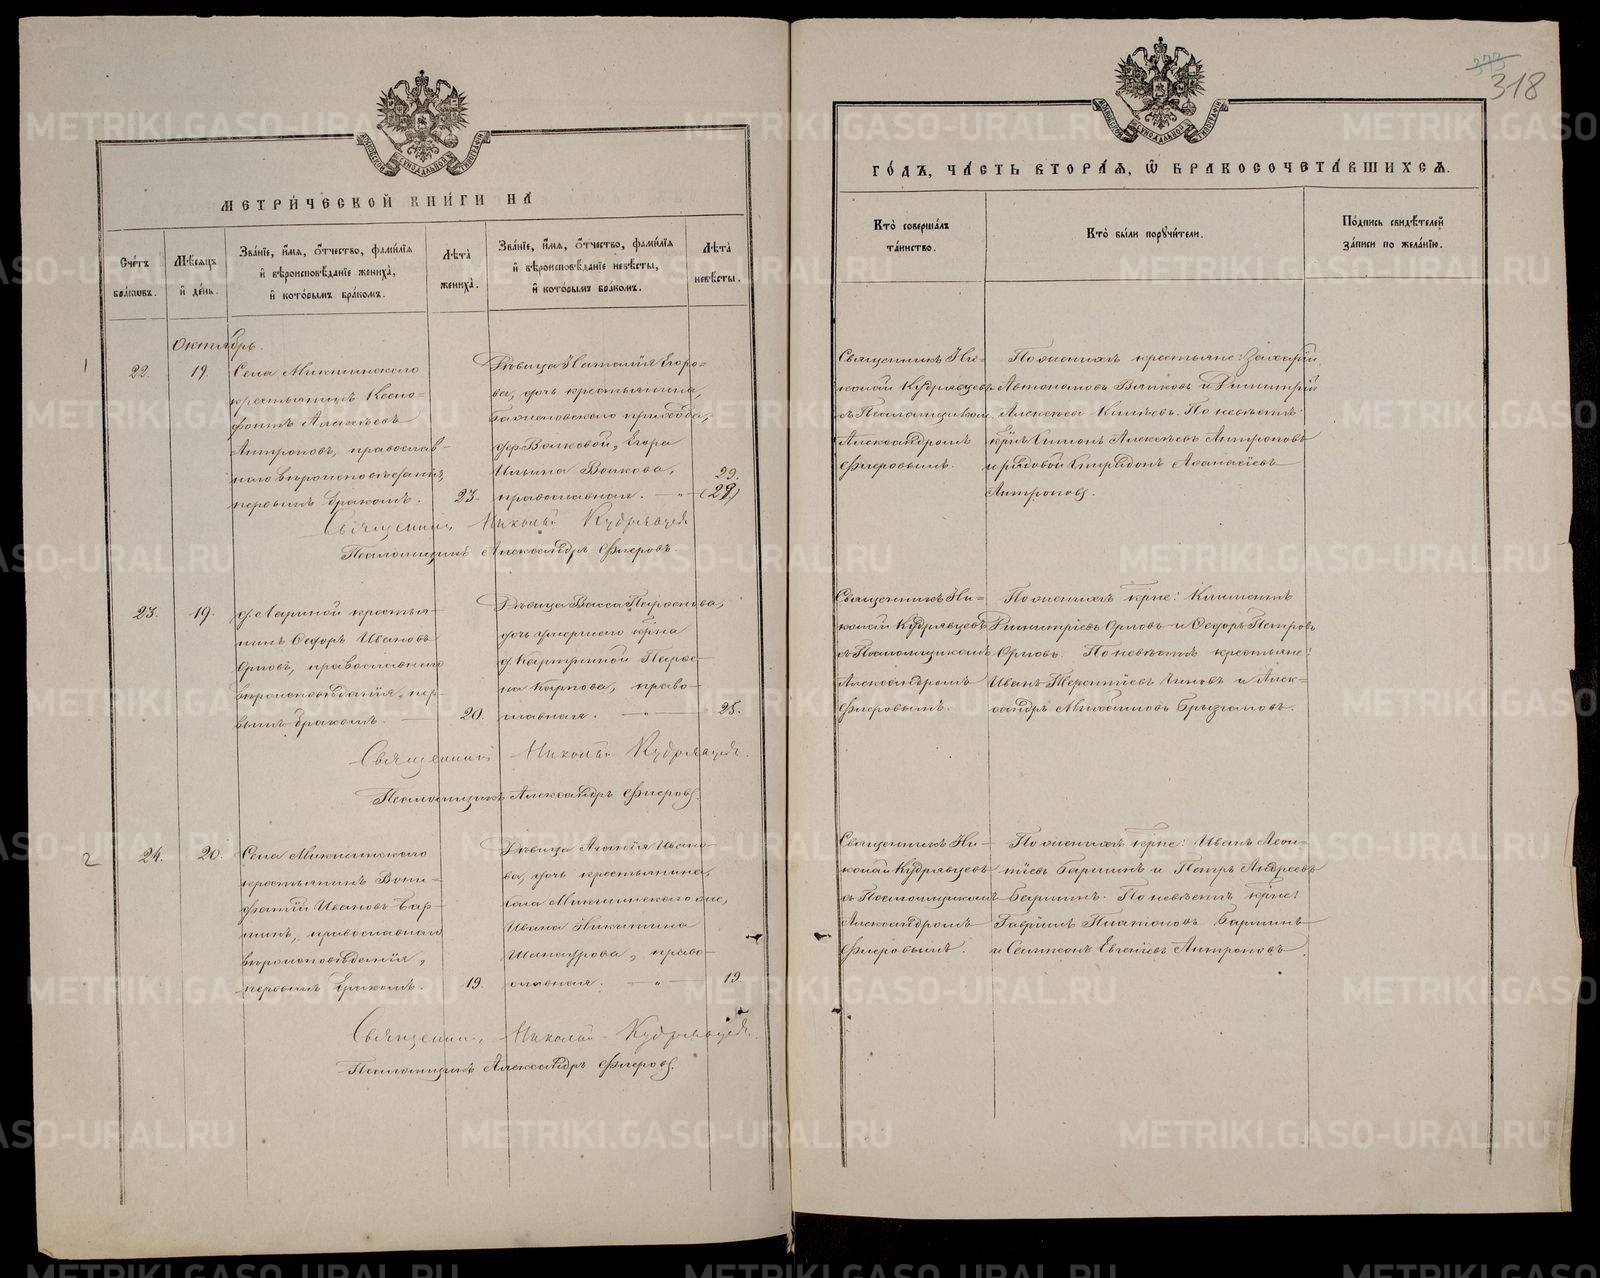 МЕТРИ́ЧЕСКОЙ КНИ́ГИ НА
Сче́тъ бра́ковъ.
Мѣ́сяцъ и де́нь.
Зва́нїе, и҆́мя, ѻ҆́тчество, фами́лїя и҆ вѣроисповѣ́данїе жениха̀, и҆ кото́рымъ бра́комъ.
Лѣта̀ жениха̀.
Зва́нїе, и҆́мя, ѻ҆́тчество, фами́лїя и҆ вѣроисповѣ́данїе невѣ́сты, и҆ кото́рымъ бра́комъ.
Лѣта̀ невѣ́сты.
Октябрь.
1
22.
19.
Села Микшинскаго
крестьянинъ Ксено-
фонтъ Алексѣевъ
Антроповъ, православ-
наго вѣроисповѣданія,
первымъ бракомъ.
23.
Дѣвица Наталія Егоро-
ва, дочь крестьянина,
прихода,
дер. Волковой, Егора
Ильина Волкова,
православная. — „ —
29.
(29)
Священникъ Николай Кудрявцевъ
Псаломщикъ Александръ Флеровъ
23.
19.
д. Лариной крестья-
нинъ Ѳедоръ Ивановъ
Орловъ, православнаго
вѣроисповѣданія, пер-
вымъ бракомъ.
20.
Дѣвица Васса Парѳенова,
дочь умершаго кр̃на
д. Парѳе-
на Карпова, право-
славная. — „ —
25.
Священникъ Николай Кудрявцевъ.
Псаломщикъ Александръ Флеровъ.
2
24.
20.
Села Микшинскаго
крестьянинъ Вони-
фатій Ивановъ Бар-
минъ, православнаго
вѣроисповѣданія,
первымъ бракомъ.
19.
Дѣвица Агапія Ивано-
ва, дочь крестьянина,
села Микшинскаго
Ивана Никитина
право-
славная. — „ —
19.
Священникъ Николай Кудрявцевъ.
Псаломщикъ Александръ Флеровъ.
373
318
ГО́ДЪ, ЧА́СТЬ ВТОРА́Я, Ѡ҆ БРАКОСОЧЕТА́ВШИХСЯ.
Кто̀ соверша́лъ та́инство.
Кто̀ бы́ли поручи́тели.
По́дпись свидѣ́телей за́писи по жела́нїю.
Священникъ Ни-
колай Кудрявцевъ
съ Псаломщикомъ
Александромъ
Флеровымъ.
По женихѣ крестьяне: Захарій
Автономовъ Вялковъ и Димитрій
Алексѣевъ По невѣстѣ:
кр̃не Симонъ Алексѣевъ Антроповъ
и рядовой Спиридонъ Аѳанасіевъ
Антроповъ.
Священникъ Ни-
колай Кудрявцевъ
съ Псаломщикомъ
Александромъ
Флеровымъ.
По женихѣ кр̃не: Климентъ
Димитріевъ Орловъ и Ѳедоръ Петровъ
Орловъ. По невѣстѣ крестьяне:
Иванъ Терентіевъ и Алек-
сандръ Михайловъ Брызгаловъ.
Священникъ Ни-
колай Кудрявцевъ
съ Псаломщикомъ
Александромъ
Флеровымъ.
По женихѣ кр̃не: Иванъ Леон-
тіевъ Барминъ и Петръ Андреевъ
Барминъ. По невѣстѣ кр̃не:
Гавріилъ Платоновъ Барминъ
и Симеонъ Евгеніевъ Антроповъ.
METRIKI.GASO-URAL.RU